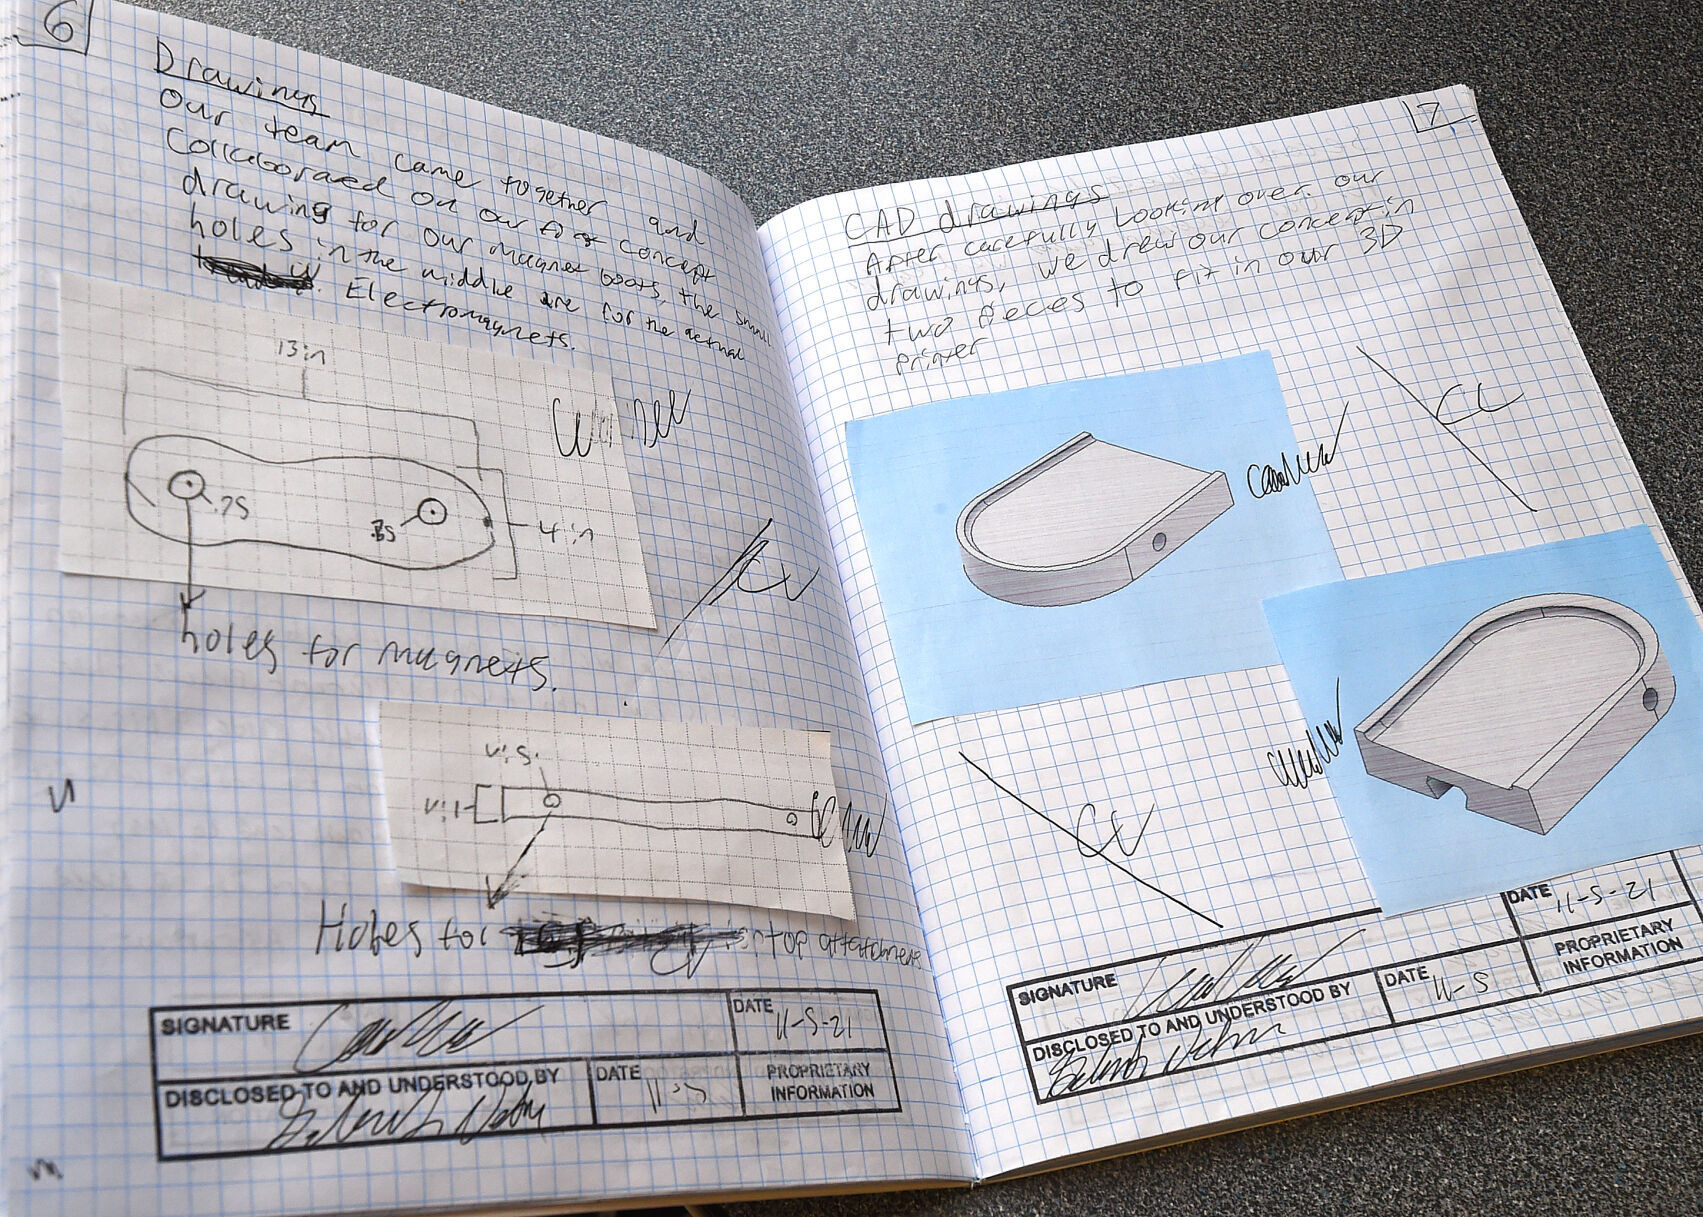 6
Drawings
Our team came together and
Collaboraed on our first concept
drawing for our magnet boats, the small
holes in the middle are for the actual
Electromagnets.
13in
.75
.75
4in
holes for magnets.
Holes for top attatchment
SIGNATURE
DATE
11-5-21
DISCLOSED TO AND UNDERSTOOD BY
DATE
11-5
PROPRIETARY
INFORMATION
7
CAD drawings
After carefully Looking over our
drawings, we drew our concept in
two pieces to fit in our 3D
printer
SIGNATURE
DATE
11-5-21
DISCLOSED TO AND UNDERSTOOD BY
DATE
11-5
PROPRIETARY
INFORMATION